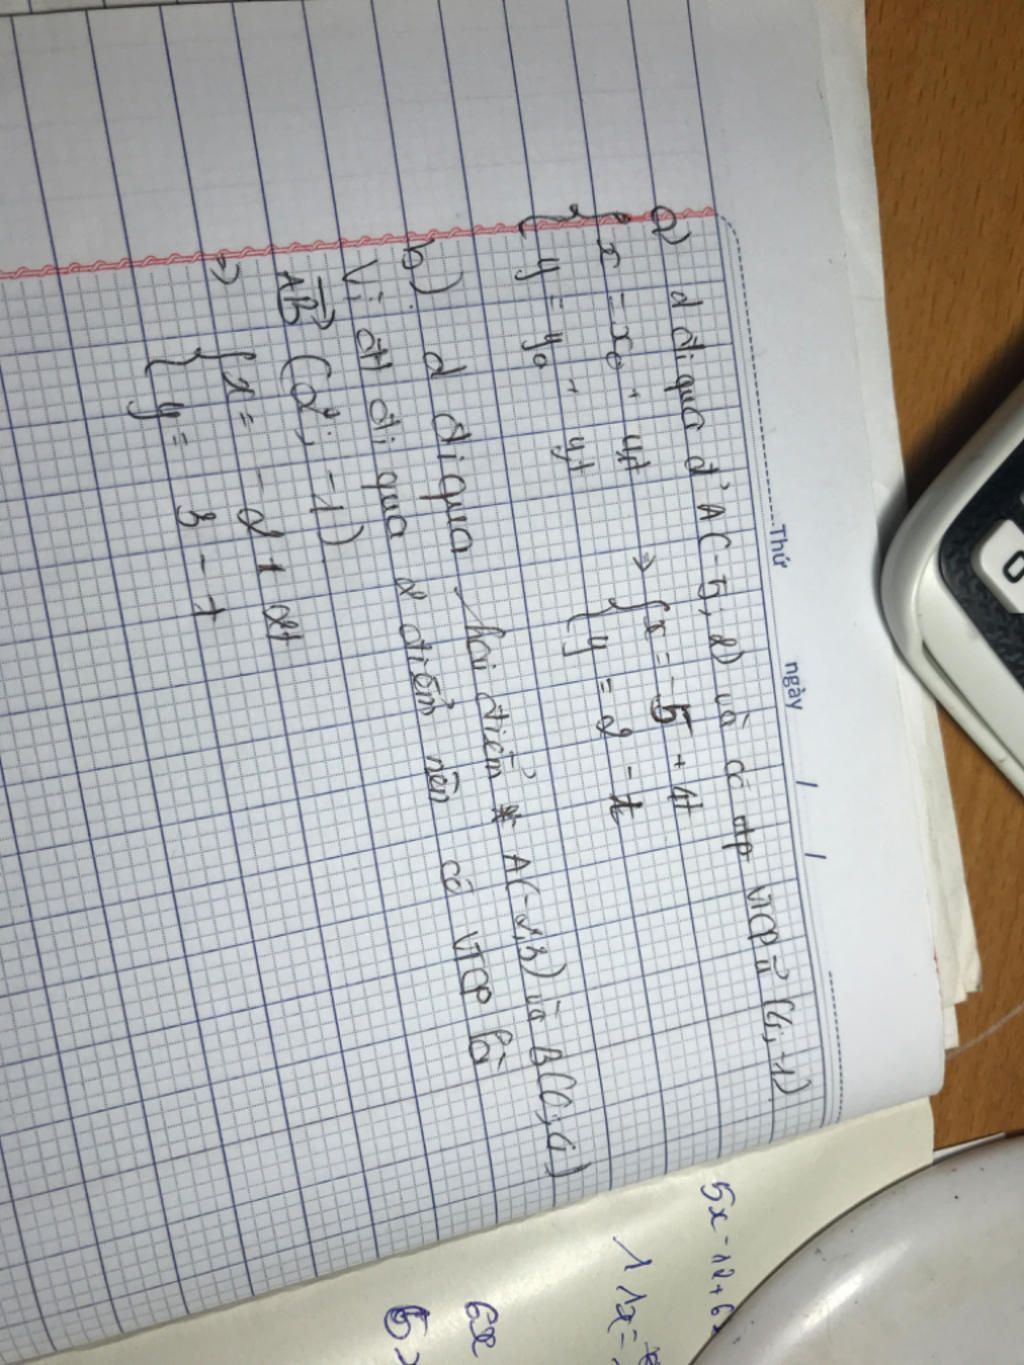 Thứ ngày / /
a) d đi qua đ' A(-5; 2) và có VTCP u (4; -1)
{ x = x₀ + u₁t => { x = -5 + 4t
{ y = y₀ + u₂t { y = 2 - t
b) d đi qua hai điểm A(-2; 3) và B(0; 2)
Vì đt đi qua 2 điểm nên có VTCP là
AB (2; -1)
=> { x = -2 + 2t
{ y = 3 - t
5x - 12 + 6
11x =
6x
0